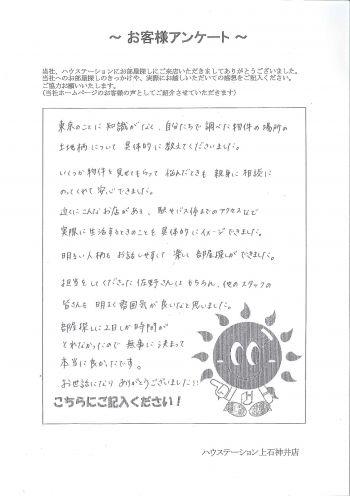 ～ お客様アンケート ～
当社、ハウステーションにお部屋探しにご来店いただきましてありがとうございました。
当社へのお部屋探しのきっかけや、実際にお越しいただいての感想をご記入ください。
ご協力お願いいたします。
(当社ホームページのお客様の声としてご紹介させていただきます)
東京のことに知識がなく、自分たちで調べた物件の場所の
土地柄について具体的に教えてくださいました。
いくつか物件を見せてもらって悩んだときも親身に相談に
のってくれて安心できました。
近くにこんなお店がある、駅やバス停までのアクセスなど
実際に生活するときのことも具体的にイメージできました。
明るい人柄もお話しやすくて楽しい部屋探しができました。
担当をしてくださった佐野さんはもちろん、他のスタッフの
皆さんも明るく雰囲気が良いなと思いました。
部屋探しに2日しか時間が
とれなかったので無事に決まって
本当に良かったです。
お世話になりありがとうございました!!
こちらにご記入ください!
ハウステーション上石神井店